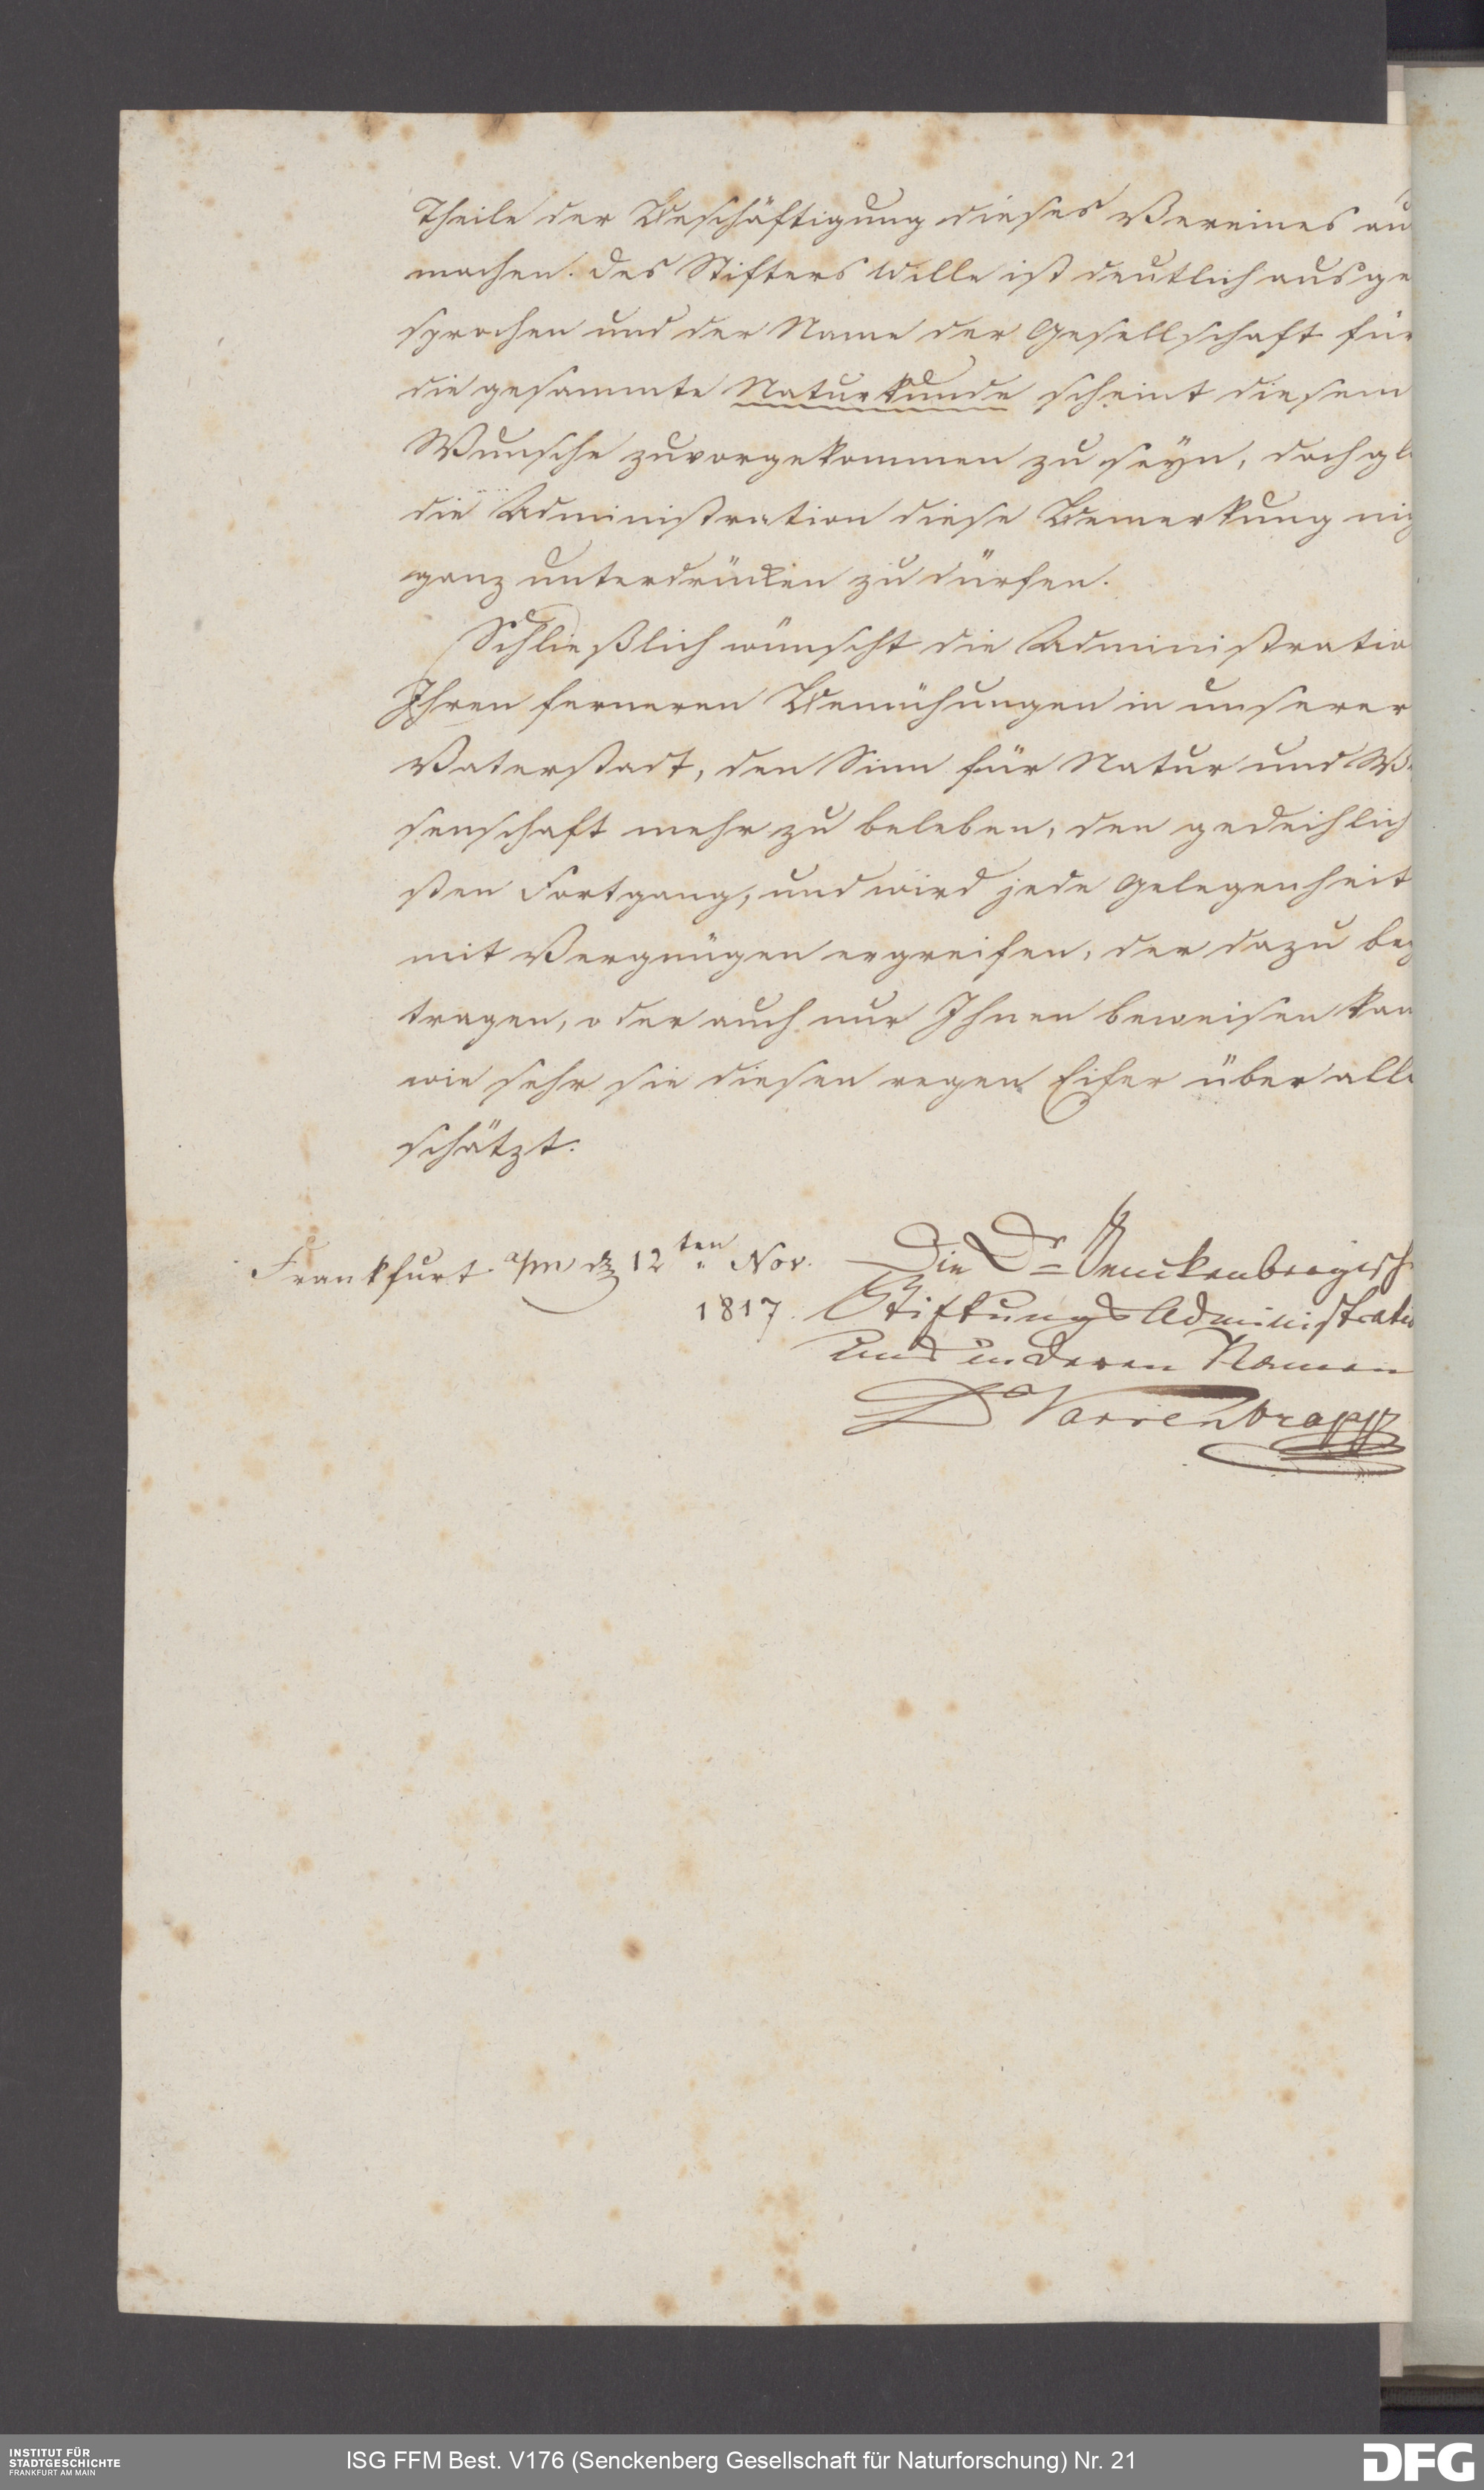 Theile der Beschäftigung dieses Vereines au
machen. Des Stifters Wille ist deutlich ausge
sprochen und der Name der Gesellschaft für
die gesammte Naturkunde scheint diesem
Wunsche zuvorgekommen zu seyn, doch gl
die Administration diese Bemerkung nich
ganz unterdrücken zu dürfen.
Schließlich wünscht die Administratio
Ihren ferneren Bemühungen in unserer
Vaterstadt, den Sinn für Natur und Wi
senschaft mehr zu beleben, den gedeihlich
sten Fortgang, und wird jede Gelegenheit
mit Vergnügen ergreifen, der dazu bey
tragen, oder auch nur Ihnen beweisen kan
wie sehr sie diesen regen Eifer über alle
schätzt.
Frankfurt a/m d 12ten Nov.
1817.
Die Dr Senckenbergisch
Stiftungs Administratio
und in deren Namen
Dr Varrentrapp
INSTITUT FÜR
STADTGESCHICHTE
FRANKFURT AM MAIN
ISG FFM Best. V176 (Senckenberg Gesellschaft für Naturforschung) Nr. 21
DFG